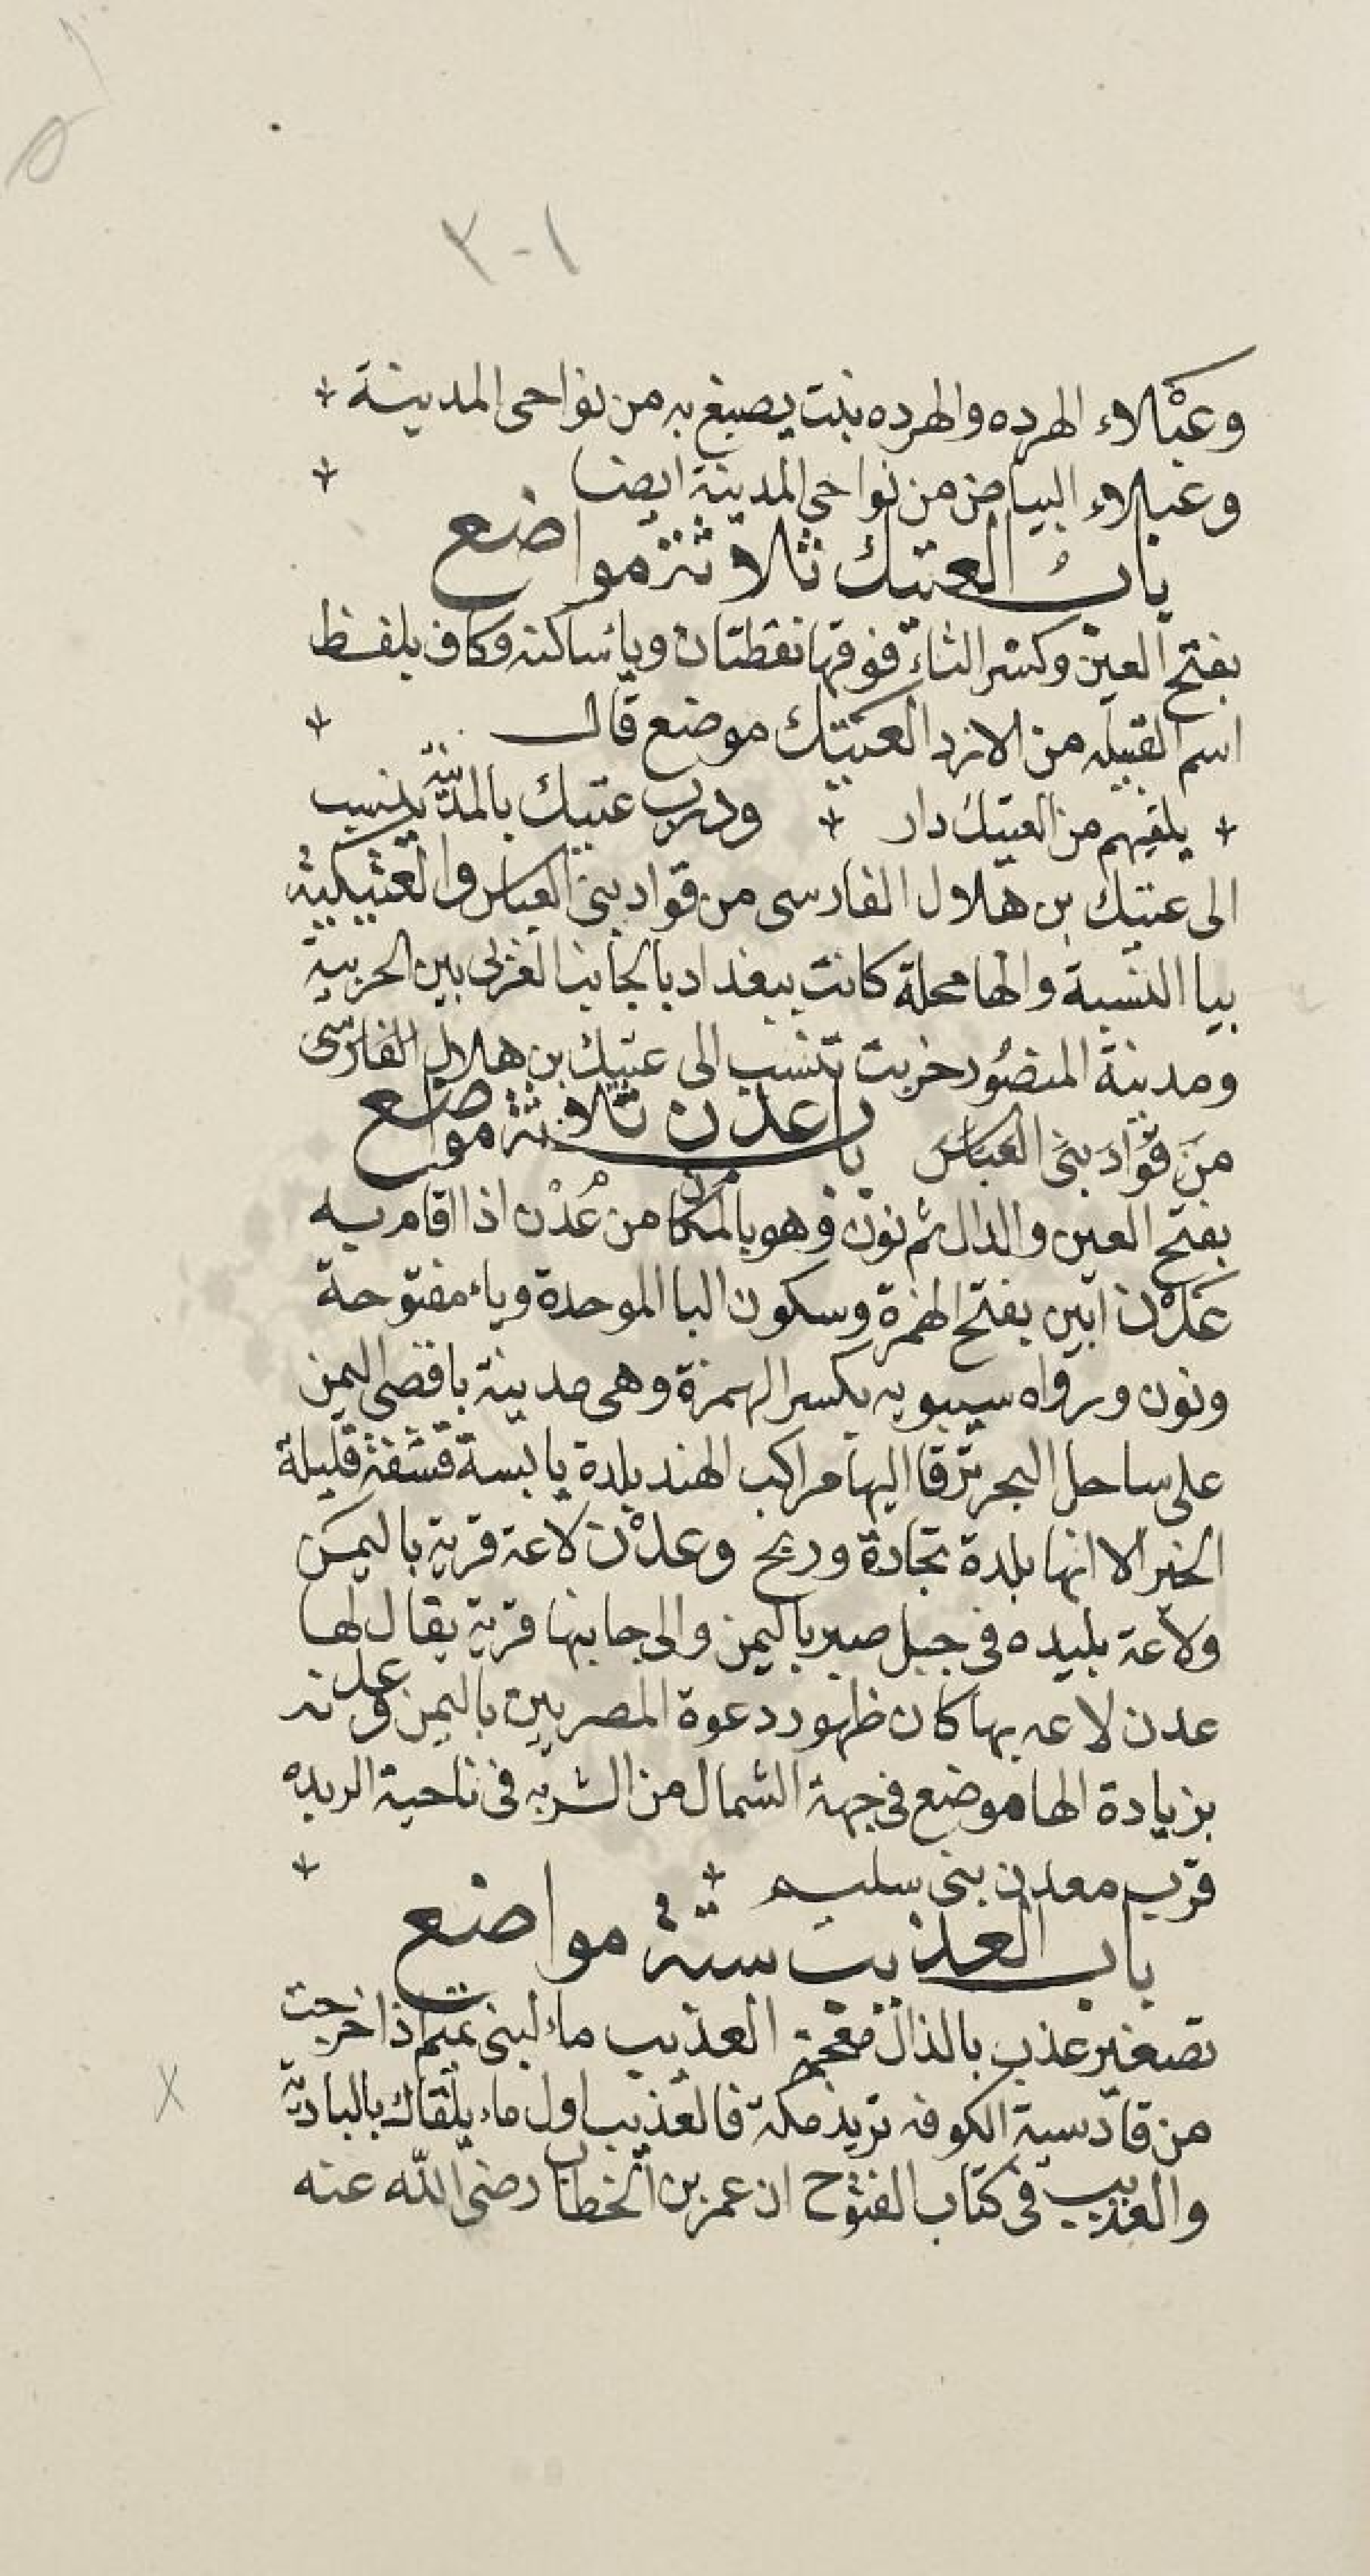 ١-٢
وعَبْلاء الهرده والهرده بنت يصبغ به من نواحى المدينة
وعبلاء البياض من نواحى المدينة ايضا
باب العتيك ثلاثة مواضع
بفتح العين وكسر التاء فوقها نقطتان وياء ساكنه وكاف بلفظ
اسم القبيله من الازد العتيك موضع قال
يلقيهم من العتيك دار ودرب عتيك بالمدينة ينسب
الى عتيك بن هلال الفارسى من قواد بنى العباس والعتيكية
بيا النسبة والها محلة كانت ببغداد بالجانب الغربى بين الحربية
ومدينة المنصُور خربت تنسب الى عتيك بن هلال الفارسى
من قواد بنى العباس باب عدن ثلاثة مواضع
بفتح العين والدال ثم نون وهو بالمكان من عُدْن اذا اقام به
عَدْن ابين بفتح الهمزة وسكون البا الموحدة وياء مفتوحة
ونون ورواه سيبويه بكسر الهمزة وهى مدينة باقصى اليمن
على ساحل البحر ترقا اليها مراكب الهند بلدة يابسة قشفة قليلة
الخير الا انها بلدة تجارة وربح وعدْن لاعة قرية باليمن
ولاعة بليده فى جبل صبر باليمن والى جابنها قرية يقال لها
عدن لاعه بها كان ظهور دعوة المصريين باليمن وعدنه
بزيادة الها موضع فى جهة الشمال من الشربه فى ناحية الربده
قرب معدن بنى سليم
باب العذيب ستة مواضع
تصغير عذب بالذال معجمة العذيب ماء لبنى تميم اذا خرجت
من قادسية الكوفه تريد مكة فالعذيب اول ماء يلقاك بالبادية
والعذيب فى كتاب الفتوح ان عمر بن الخطاب رضى الله عنه